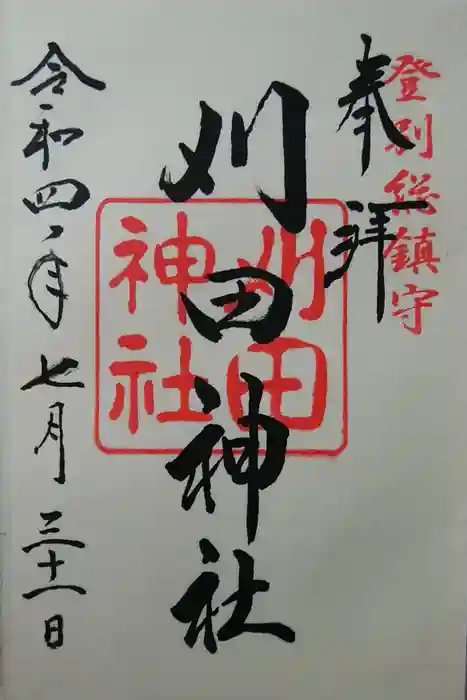 登別総鎮守
奉拝
刈田神社
刈田
神社
令和四年七月三十一日